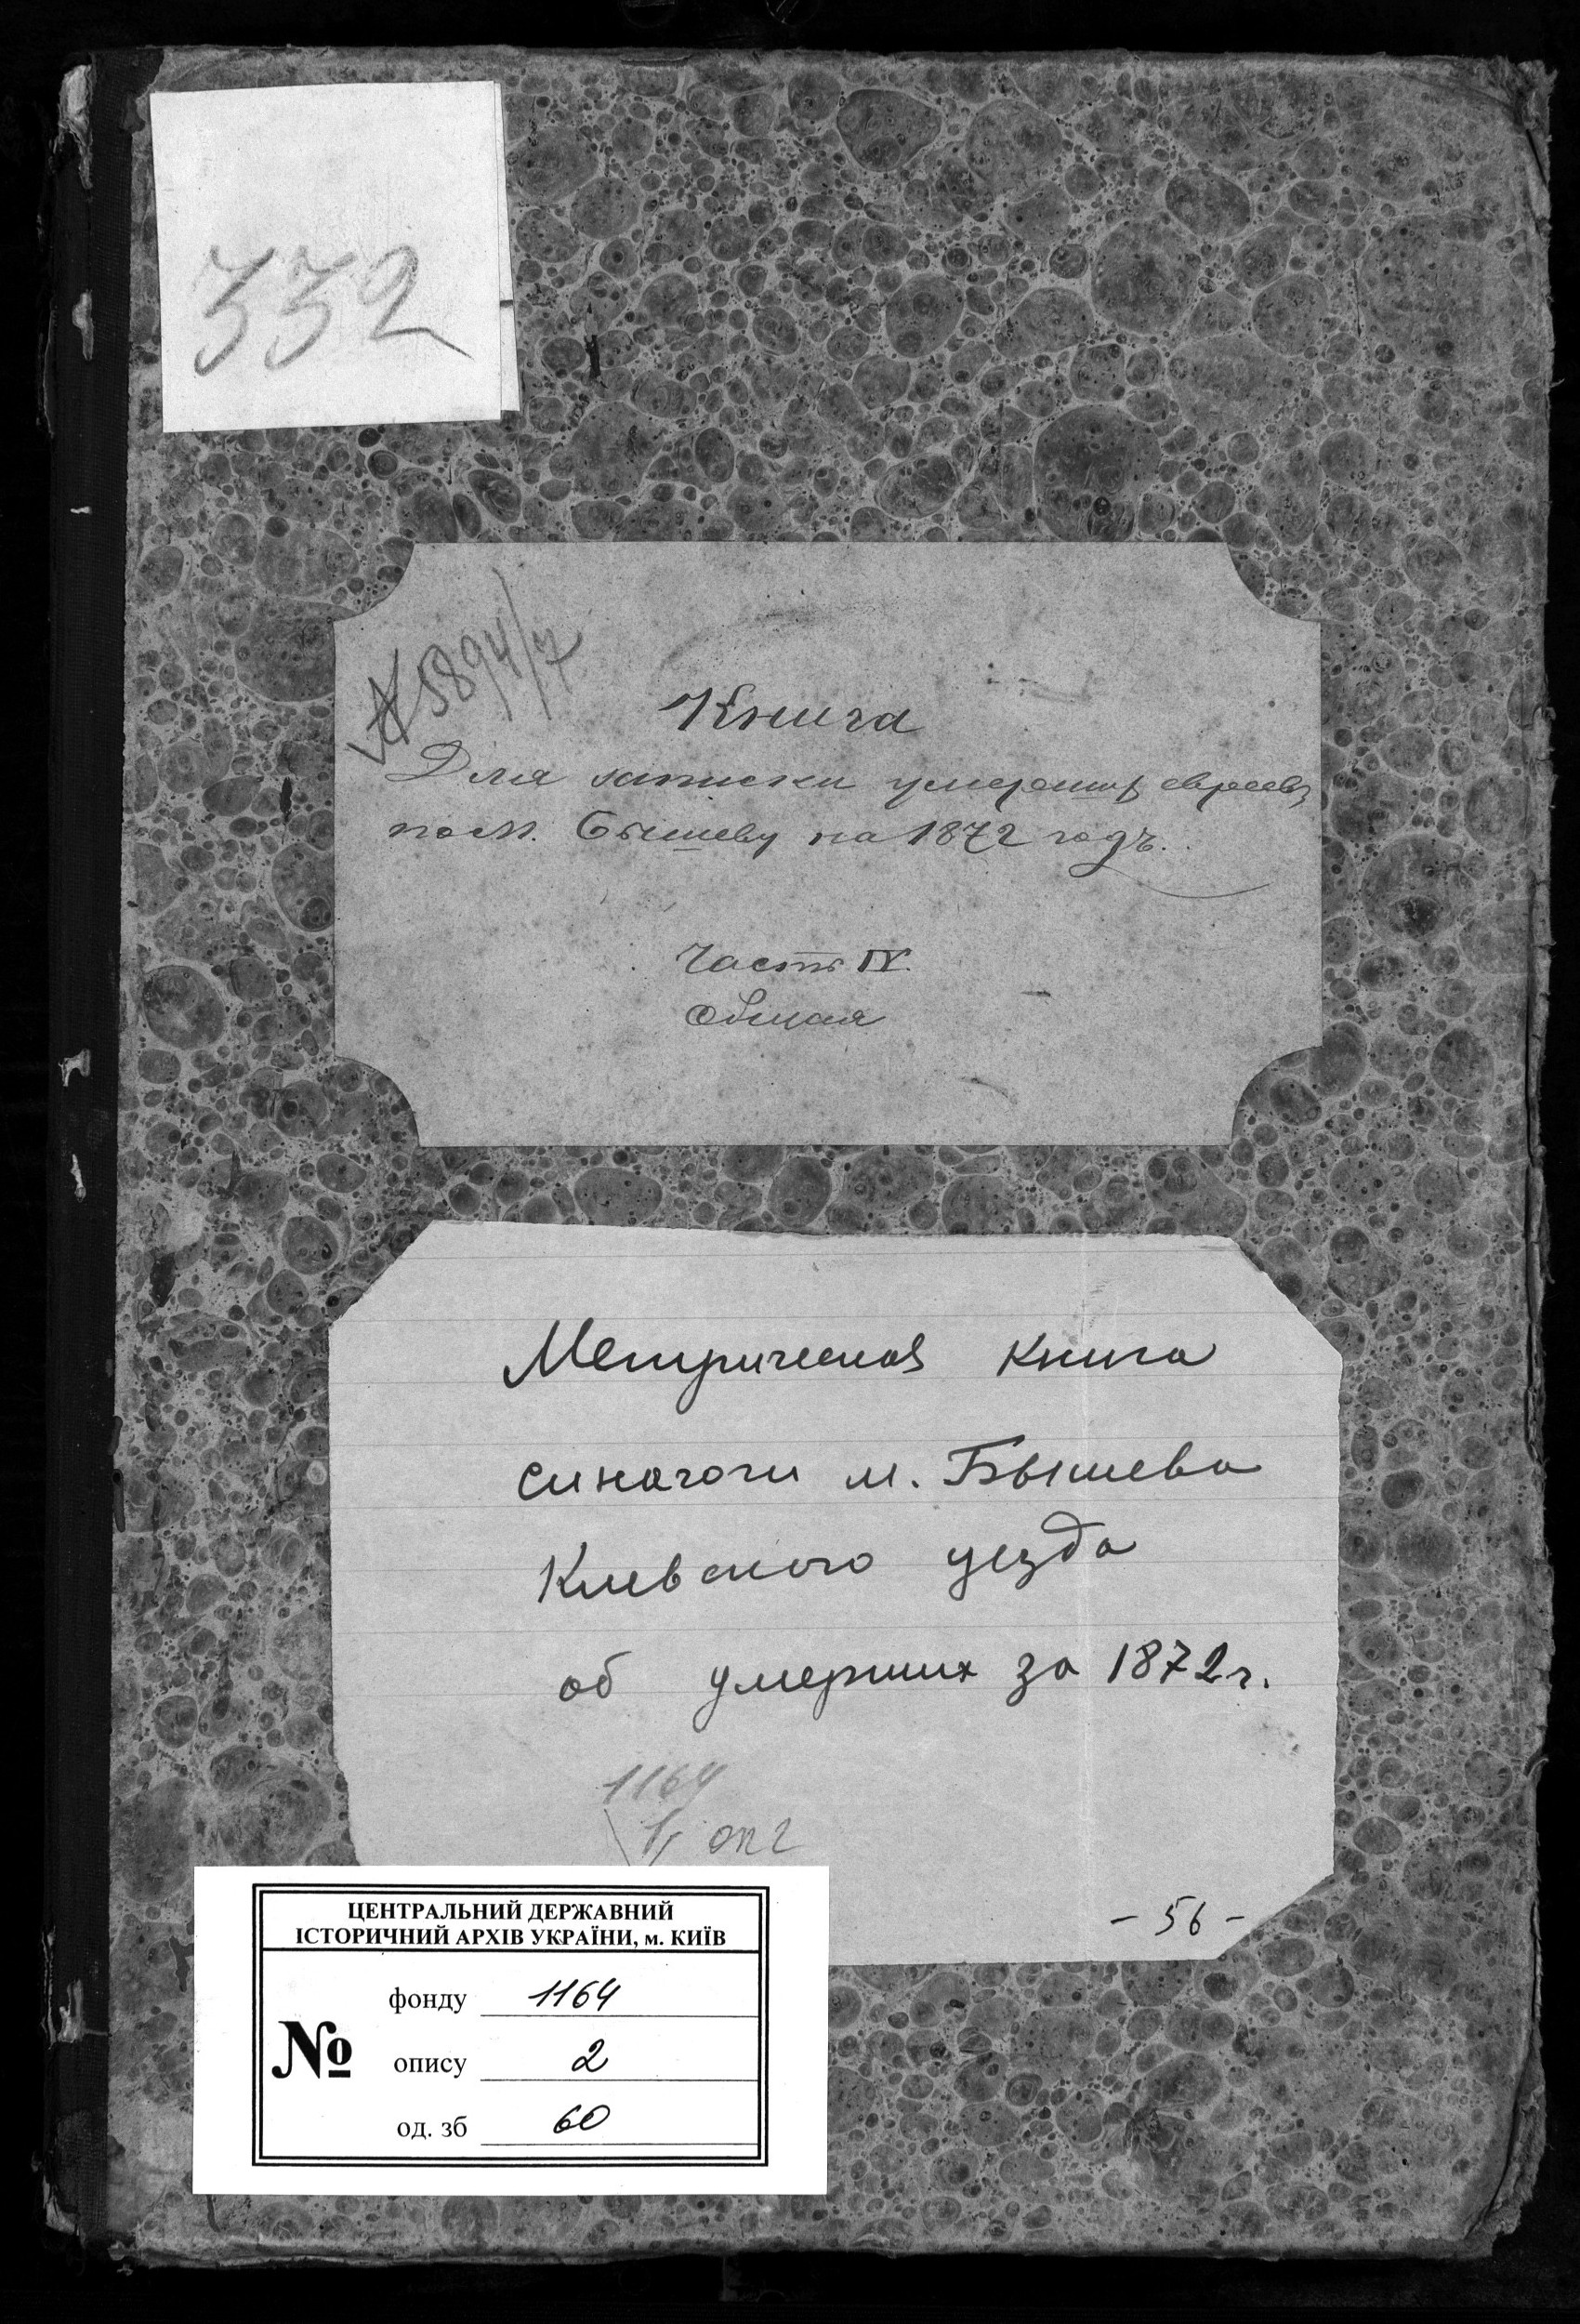 332
№ 5894/7
Книга
Для записки умерших евреевъ
по м. Бышеву на 1872 годъ.
Часть IV.
Общая
Метрическая книга
синагоги м. Бышева
Киевского уезда
об умерших за 1872 г.
1164
1, оп 2
- 56 -
ЦЕНТРАЛЬНИЙ ДЕРЖАВНИЙ
ІСТОРИЧНИЙ АРХІВ УКРАЇНИ, м. КИЇВ
фонду 1164
№ опису 2
од. зб 60